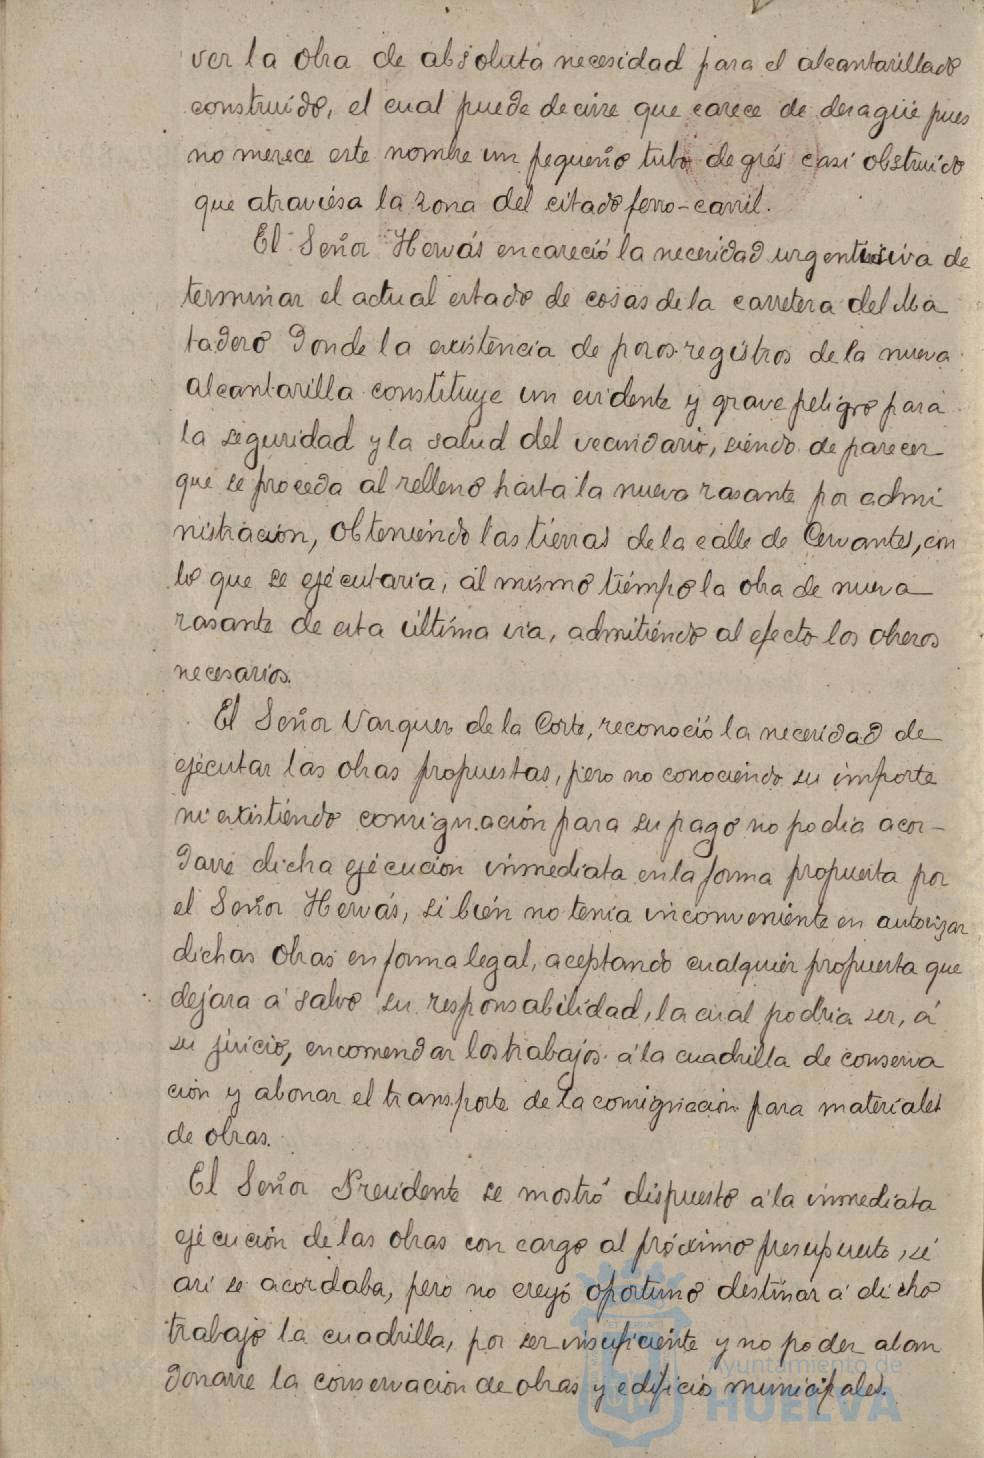 ver la obra de absoluta necesidad para el alcantarillado
construido, el cual puede decirse que carece de desagüe pues
no merece este nombre un pequeño tubo de grés casi obstruido
que atraviesa la zona del citado ferro-carril.
El Señor Hervás encareció la necesidad urgentisiva de
terminar el actual estado de cosas de la carretera del Ma
tadero donde la existencia de pozos registros de la nueva
alcantarilla constituye un evidente y grave peligro para
la seguridad y la salud del vecindario, siendo de parecer
que se proceda al relleno hasta la nueva rasante por admi
nistración, obteniendo las tierras de la calle de Cervantes, con
lo que se ejecutaria, al mismo tiempo la obra de nueva
rasante de esta última via, admitiendo al efecto los obreros
necesarios.
El Señor Vazquez de la Corte, reconoció la necesidad de
ejecutar las obras propuestas, pero no conociendo su importe
ni existiendo consignación para su pago no podia acor-
darse dicha ejecución inmediata en la forma propuesta por
el Señor Hervás, si bien no tenia inconveniente en autorizar
dichas obras en forma legal, aceptando cualquier propuesta que
dejara á salvo su responsabilidad, la cual podria ser, á
su juicio, encomendar los trabajos á la cuadrilla de conserva
ción y abonar el transporte de la consignación para materiales
de obras.
El Señor Presidente se mostró dispuesto á la inmediata
ejecución de las obras con cargo al próximo presupuesto, si
asi se acordaba, pero no creyó oportuno destinar á dicho
trabajo la cuadrilla, por ser insuficiente y no poder aban
donarse la conservación de obras y edificios municipales.
Ayuntamiento de
HUELVA